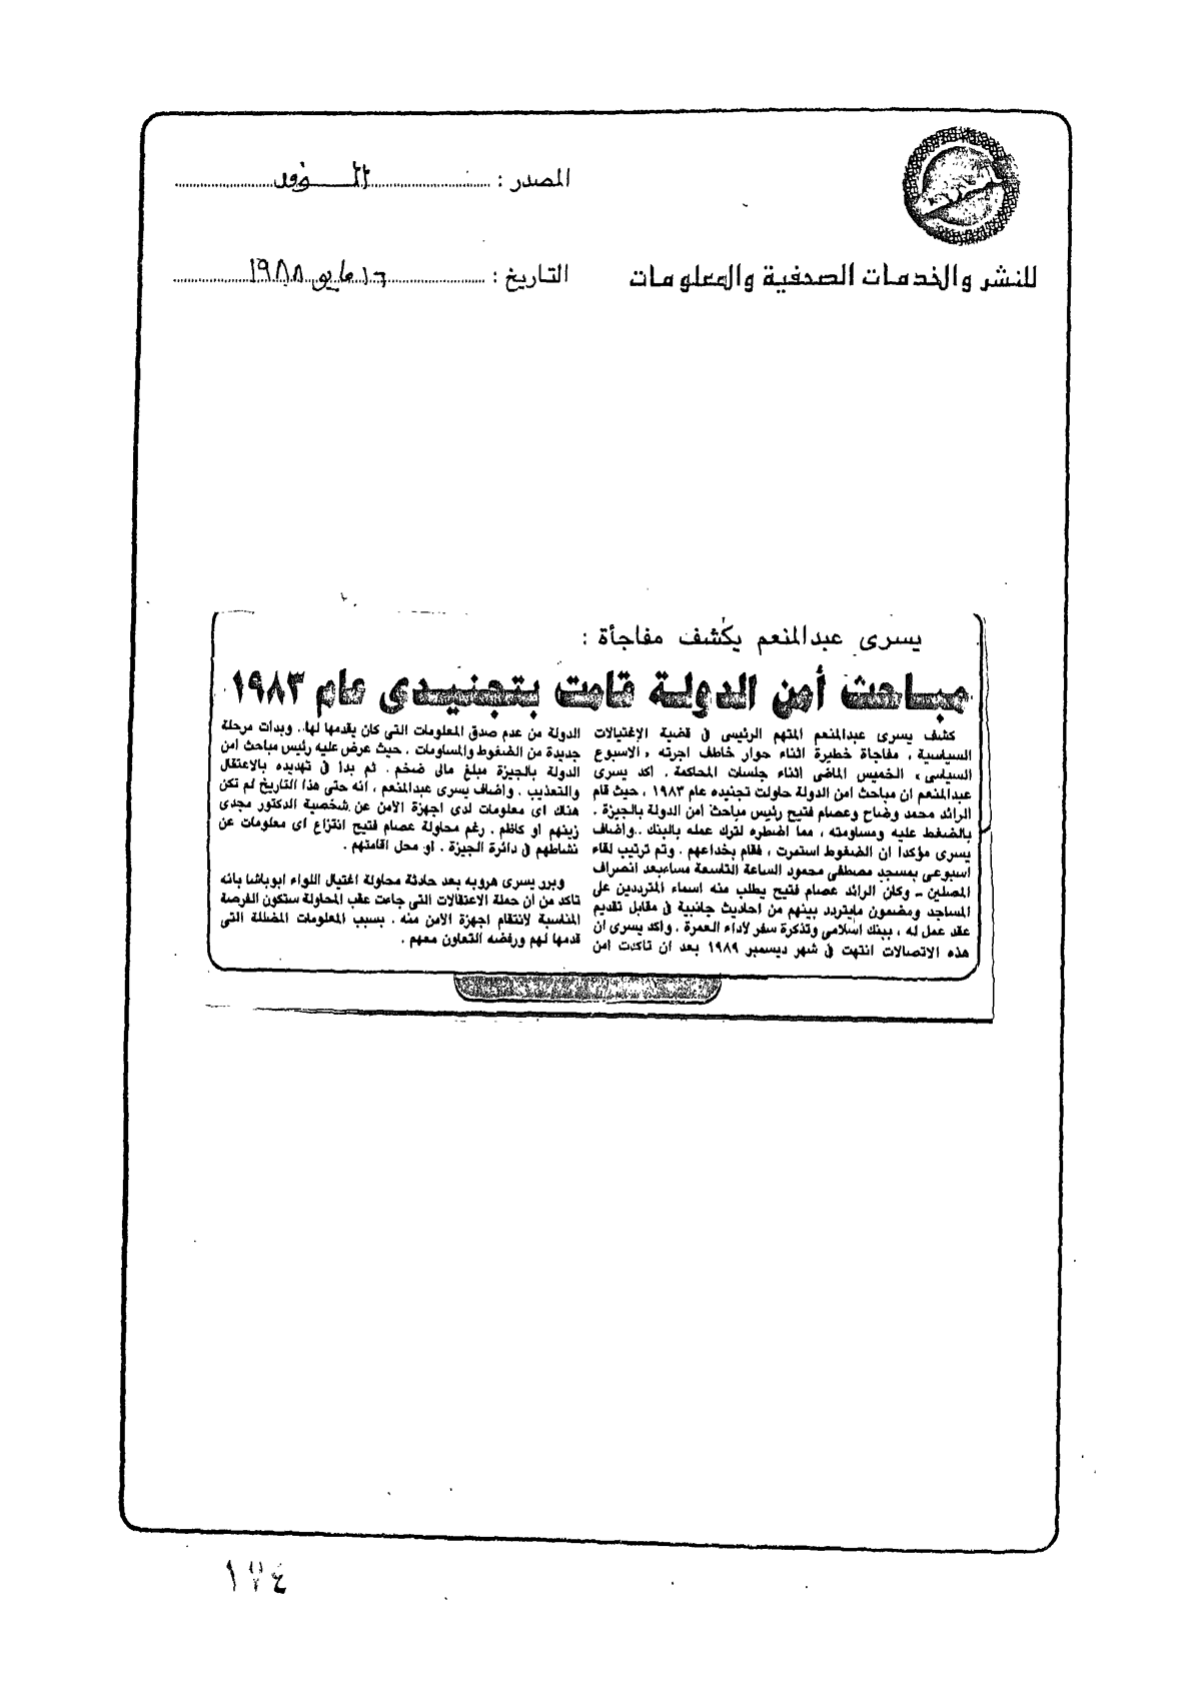 المصدر : الوفد
التاريخ : ١٦ مايو ١٩٨٨
للنشر والخدمات الصحفية والمعلومات
يسرى عبدالمنعم يكشف مفاجأة :
مباحث أمن الدولة قامت بتجنيدى عام ١٩٨٣
كشف يسرى عبدالمنعم المتهم الرئيسى فى قضية الإغتيالات
السياسية ، مفاجاة خطيرة اثناء حوار خاطف اجرته ، الاسبوع
السياسى ، الخميس الماضى اثناء جلسات المحاكمة . اكد يسرى
عبدالمنعم ان مباحث امن الدولة حاولت تجنيده عام ١٩٨٣ ، حيث قام
الرائد محمد وضاح وعصام فتيح رئيس مباحث امن الدولة بالجيزة .
بالضغط عليه ومساومته ، مما اضطره لترك عمله بالبنك .. واضاف
يسرى مؤكدا ان الضغوط استمرت ، فقام بخداعهم . وتم ترتيب لقاء
اسبوعى بمسجد مصطفى محمود الساعة التاسعة مساءبعد انصراف
المصلين ــ وكان الرائد عصام فتيح يطلب منه اسماء المترددين على
المساجد ومضمون مايتردد بينهم من احاديث جانبية فى مقابل تقديم
عقد عمل له ، ببنك اسلامى وتذكرة سفر لاداء العمرة . واكد يسرى ان
هذه الاتصالات انتهت فى شهر ديسمبر ١٩٨٩ بعد ان تاكدت امن
الدولة من عدم صدق المعلومات التى كان يقدمها لها.. وبدات مرحلة
جديدة من الضغوط والمساومات . حيث عرض عليه رئيس مباحث امن
الدولة بالجيزة مبلغ مالى ضخم . ثم بدأ فى تهديده بالاعتقال
والتعذيب . واضاف يسرى عبدالمنعم ، انه حتى هذا التاريخ لم تكن
هناك اى معلومات لدى اجهزة الأمن عن شخصية الدكتور مجدى
زينهم او كاظم . رغم محاولة عصام فتيح انتزاع اى معلومات عن
نشاطهم فى دائرة الجيزة . او محل اقامتهم .
وبرر يسرى هروبه بعد حادثة محاولة اغتيال اللواء ابوباشا بانه
تاكد من ان حملة الاعتقالات التى جاءت عقب المحاولة ستكون الفرصة
المناسبة لانتقام اجهزة الامن منه . بسبب المعلومات المضللة التى
قدمها لهم ورفضه التعاون معهم .
١٧٤